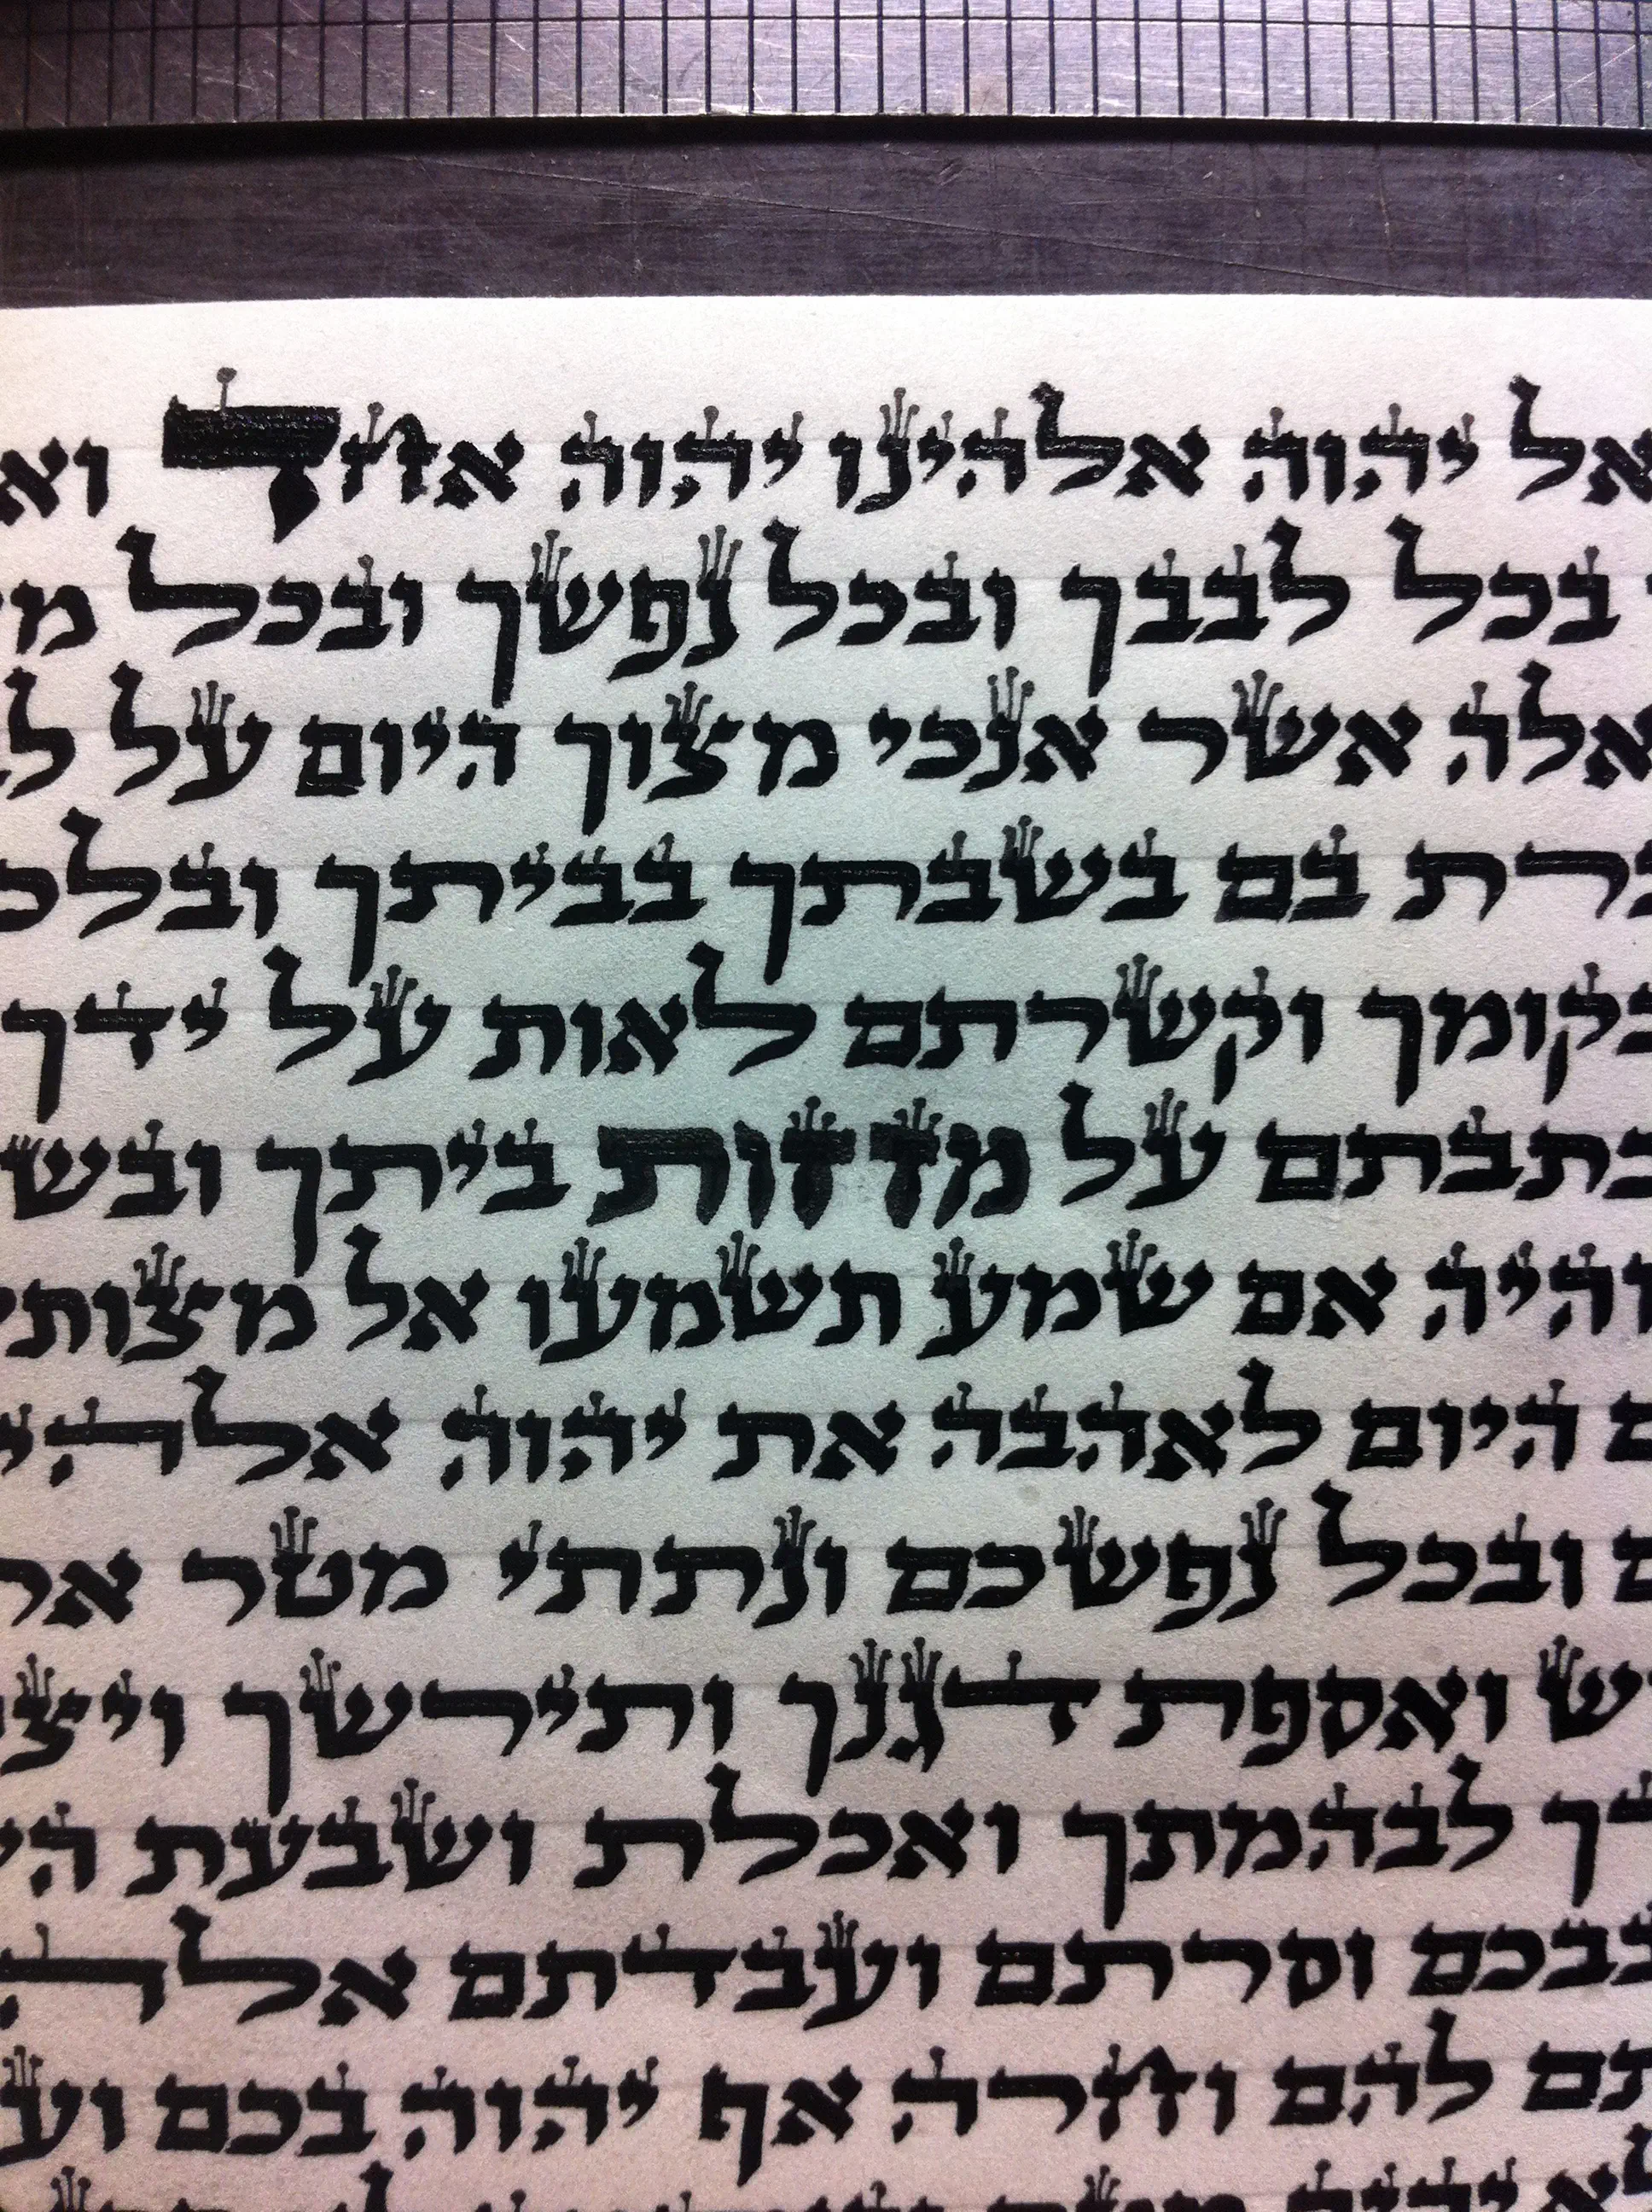 אל יהוה אלהינו יהוה אחד וא
בכל לבבך ובכל נפשך ובכל מ
אלה אשר אנכי מצוך היום על ל
ברת בם בשבתך בביתך ובלכ
בקומך וקשרתם לאות על ידך
כתבתם על מזזות ביתך ובש
והיה אם שמע תשמעו אל מצותי
ם היום לאהבה את יהוה אלהי
ם ובכל נפשכם ונתתי מטר אר
ש ואספת דגנך ותירשך ויצ
דך לבהמתך ואכלת ושבעת הש
בבכם וסרתם ועבדתם אלה
תם להם וחרה אף יהוה בכם וע